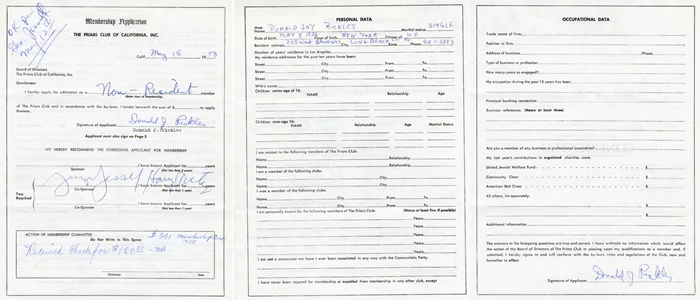 Membership Application
THE FRIARS CLUB OF CALIFORNIA, INC.
Calif. May 15 1958
Board of Directors
The Friars Club of California, Inc.
Gentlemen:
I hereby apply for admission as a Non-Resident member
of The Friars Club and in accordance with the by-laws, I tender herewith the sum of $ to apply
thereon.
Signature of Applicant Donald J. Rickles
Donald J. Rickles
Applicant must also sign on Page 3
WE HEREBY RECOMMEND THE FOREGOING APPLICANT FOR MEMBERSHIP
I have known Applicant for years
Sponsor
I have known Applicant for years
Co-Sponsor
I have known Applicant for years
Co-Sponsor
Two
Required
ACTION OF MEMBERSHIP COMMITTEE
Do Not Write in This Space
Received check for $120.00
Chairman Date
PERSONAL DATA
Name DONALD JAY RICKLES Marital status SINGLE
Date of birth MAY 8 1926 NEW YORK Citizen of US
Resident address LONG BEACH Zone Phone
Number of years' residence in Los Angeles
My residence addresses for the past ten years have been:
Street City From To
Street City From To
Street City From To
Wife's name
Children under age 16:
NAME Relationship Age
Children over age 16:
NAME Relationship Age Marital Status
I am related to the following members of The Friars Club:
Name Relationship
Name Relationship
I am a member of the following clubs:
Name City
Name City
I was a member of the following clubs:
Name City From To
Name City From To
I am personally known by the following members of The Friars Club: (Name at least five if possible)
Years
Years
Years
Years
Years
I am not a communist nor have I ever been associated in any way with the Communistic Party.
I have never been rejected for membership or expelled from membership in any other club, except
OCCUPATIONAL DATA
Trade name of firm
Position in firm
Address of business Phone
Type of business or profession
How many years so engaged?
My occupation during the past 15 years has been:
Principal banking connection
Business references: (Name at least three)
Are you a member of any business or professional association?
My last year's contributions to organized charities were:
United Jewish Welfare Fund $
Community Chest $
American Red Cross $
All others, list separately:
$
$
$
Additional information:
The answers to the foregoing questions are true and correct. I have withheld no information which would affect
the action of the Board of Directors of The Friars Club in passing upon my qualifications as a member and, if
admitted, I hereby agree to and will conform with the by-laws, rules and regulations of the Club, now and
hereafter in effect.
Signature of Applicant: Donald J. Rickles